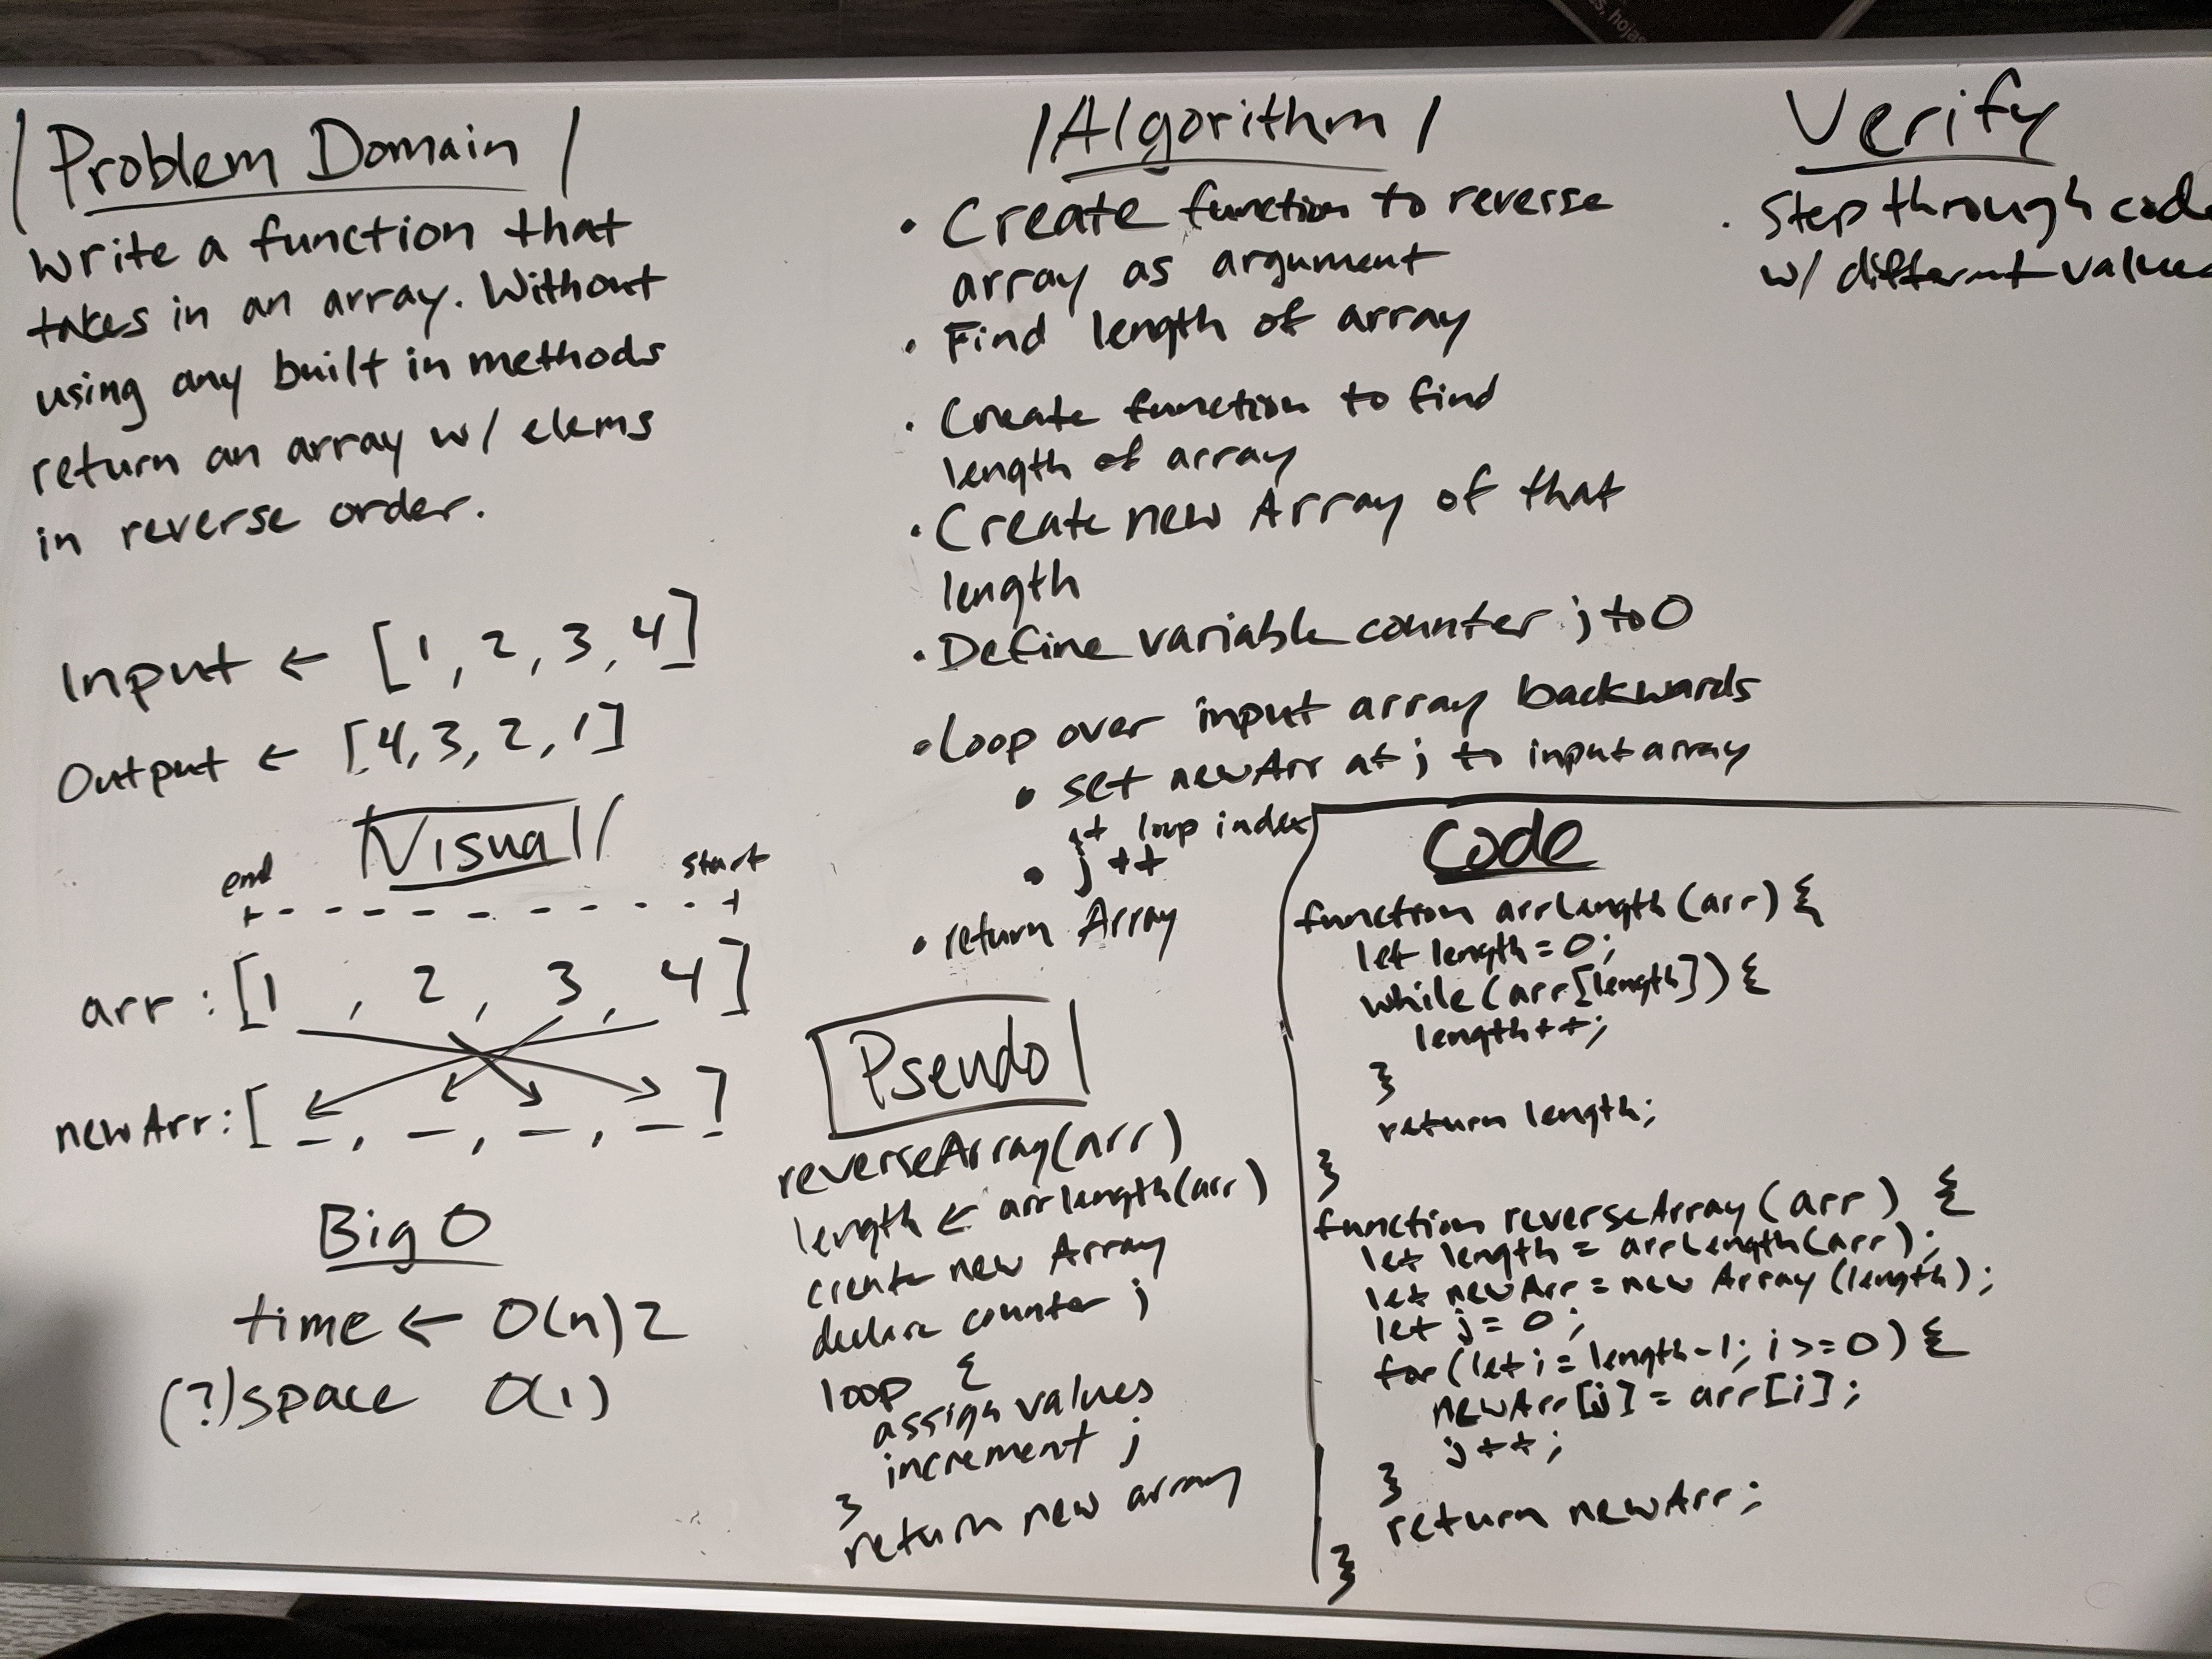 Problem Domain
Write a function that
takes in an array. Without
using any built in methods
return an array w/ elems
in reverse order.
Input ← [1, 2, 3, 4]
Output ← [4, 3, 2, 1]
Visual
end start
arr : [1 , 2 , 3 , 4]
newArr : [ _ , _ , _ , _ ]
Big O
time ← O(n)2
(?) space O(1)
Algorithm
• Create function to reverse
array as argument
• Find length of array
• Create function to find
length of array
• Create new Array of that
length
• Define variable counter j to 0
• loop over input array backwards
• set newArr at j to input array
at loop index
• j++
• return Array
Pseudo
reverseArray(arr)
length ← arrlength(arr)
create new Array
declare counter j
loop {
assign values
increment j
}
return new array
Verify
• Step through code
w/ different values
Code
function arrLength (arr) {
let length = 0;
while (arr[length]) {
length++;
}
return length;
}
function reverseArray (arr) {
let length = arrLength(arr);
let newArr = new Array (length);
let j = 0;
for (let i = length-1; i >= 0) {
newArr[j] = arr[i];
j++;
}
return newArr;
}
s, hojas